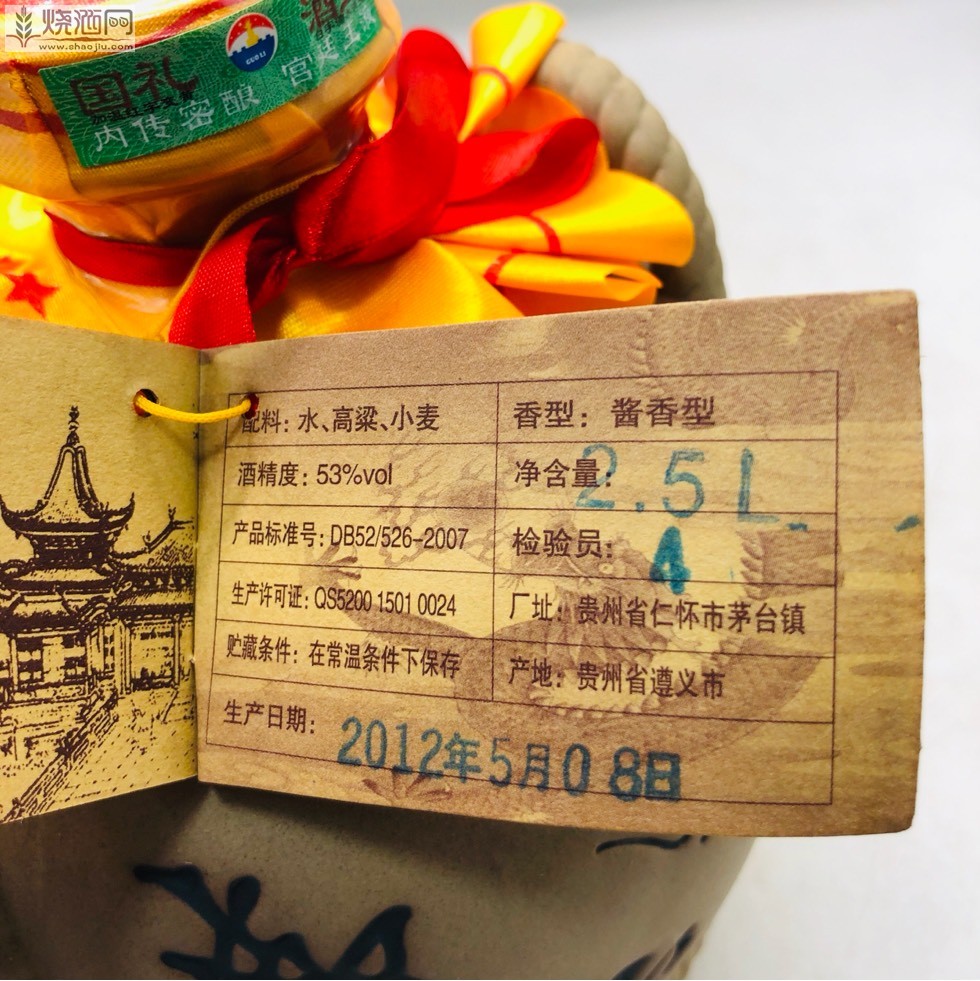 烧酒网
www.shaojiu.com
国礼
内传密酿 宫廷玉液
配料：水、高粱、小麦
香型：酱香型
酒精度：53%vol
净含量：2.5L
产品标准号：DB52/526-2007
检验员：4
生产许可证：QS5200 1501 0024
厂址：贵州省仁怀市茅台镇
贮藏条件：在常温条件下保存
产地：贵州省遵义市
生产日期：2012年5月08日